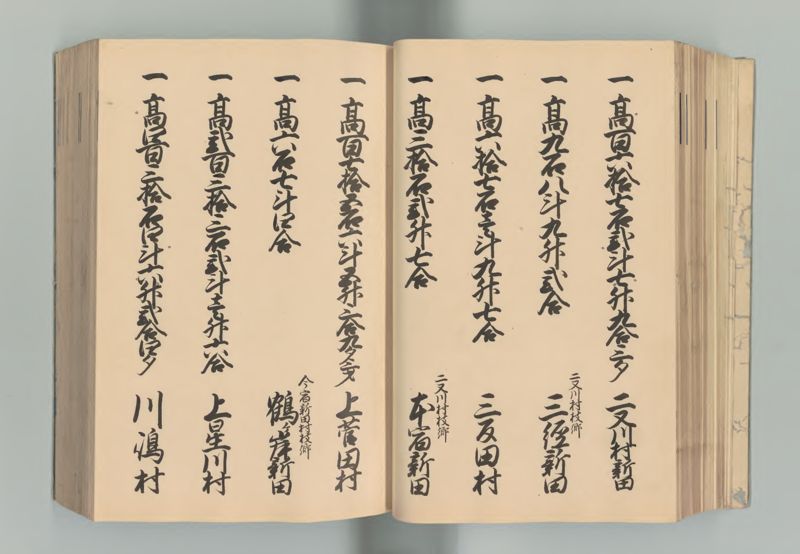 一 高百六拾七石弐斗七升九合三夕 二又川村新田
一 高九石八斗九升弐合
二又川村枝郷
三経新田
一 高六拾七石壱斗九升七合 三反田村
一 高三拾石弐升七合
二又川村枝郷
本宿新田
一 高百七拾五石六斗五升六合九夕 上菅田村
一 高六石七斗四合
今宿新田村枝郷
鶴ヶ峯新田
一 高弐百三拾三石弐斗壱升六合 上星川村
一 高四百三拾石四斗六升弐合四夕 川嶋村